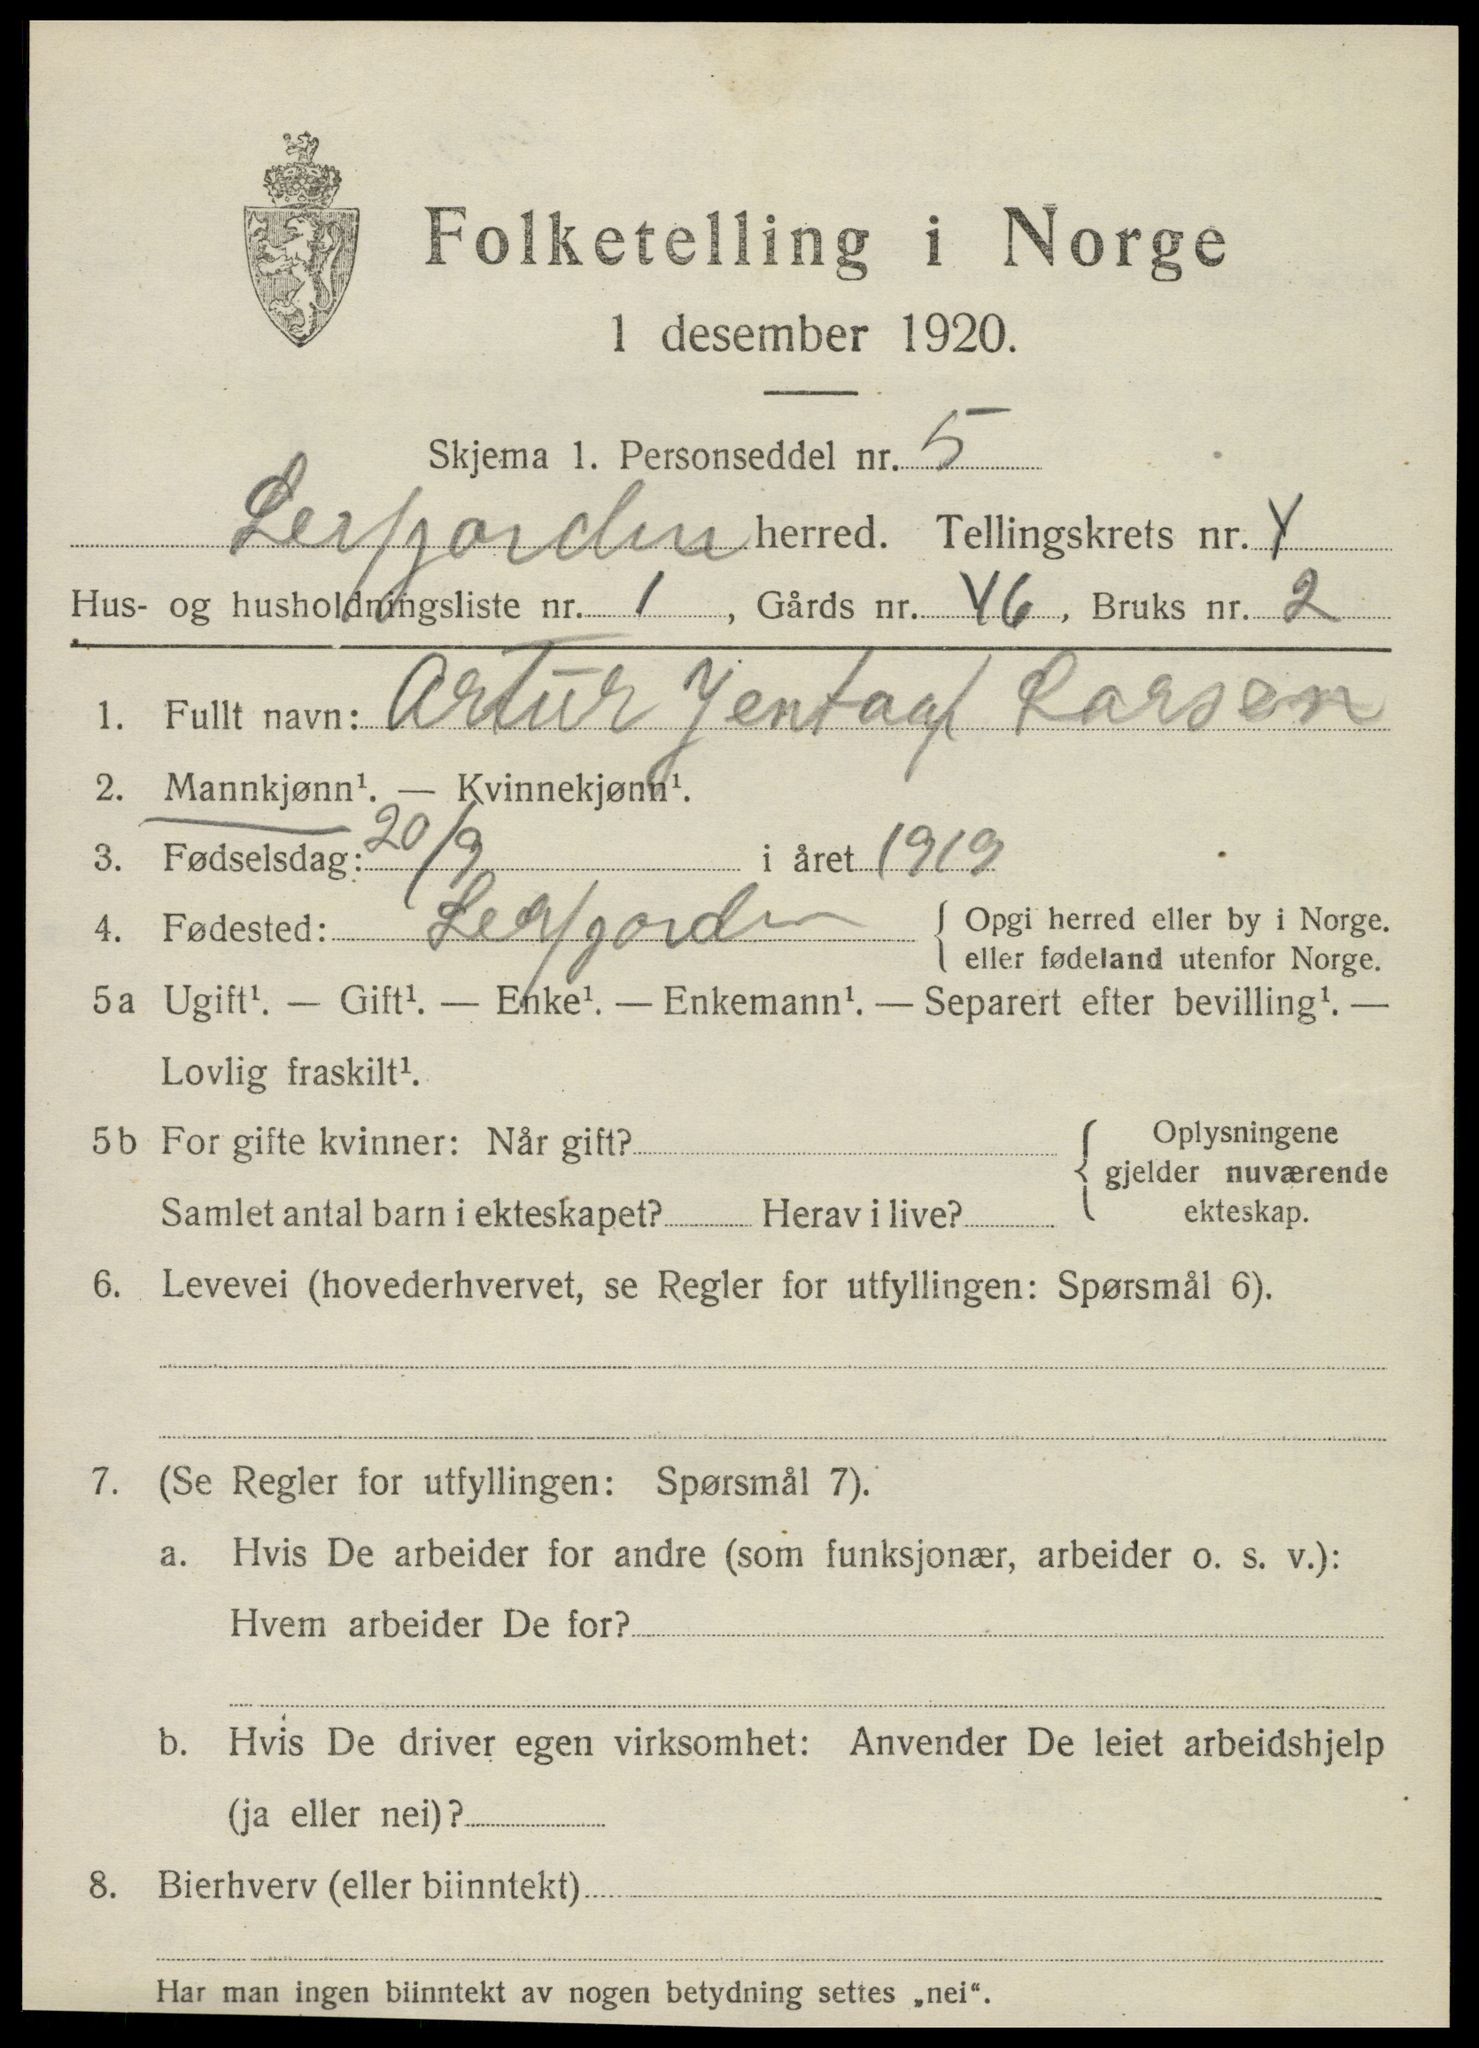 Folketelling i Norge
1 desember 1920.
Skjema 1. Personseddel nr. 5
Leirfjorden herred. Tellingskrets nr. 4
Hus- og husholdningsliste nr. 1, Gårds nr. 46, Bruks nr. 2
1. Fullt navn: Artur Larsen
2. Mannkjønn¹. — Kvinnekjønn¹.
3. Fødselsdag: 20/9 i året 1919
4. Fødested: { Opgi herred eller by i Norge.
eller fødeland utenfor Norge.
5a Ugift¹. — Gift¹. — Enke¹. — Enkemann¹. — Separert efter bevilling¹. —
Lovlig fraskilt¹.
5b For gifte kvinner: Når gift? { Oplysningene
gjelder nuværende
Samlet antal barn i ekteskapet? Herav i live? ekteskap.
6. Levevei (hovederhvervet, se Regler for utfyllingen: Spørsmål 6).
7. (Se Regler for utfyllingen: Spørsmål 7).
a. Hvis De arbeider for andre (som funksjonær, arbeider o. s. v.):
Hvem arbeider De for?
b. Hvis De driver egen virksomhet: Anvender De leiet arbeidshjelp
(ja eller nei)?
8. Bierhverv (eller biinntekt)
Har man ingen biinntekt av nogen betydning settes „nei“.